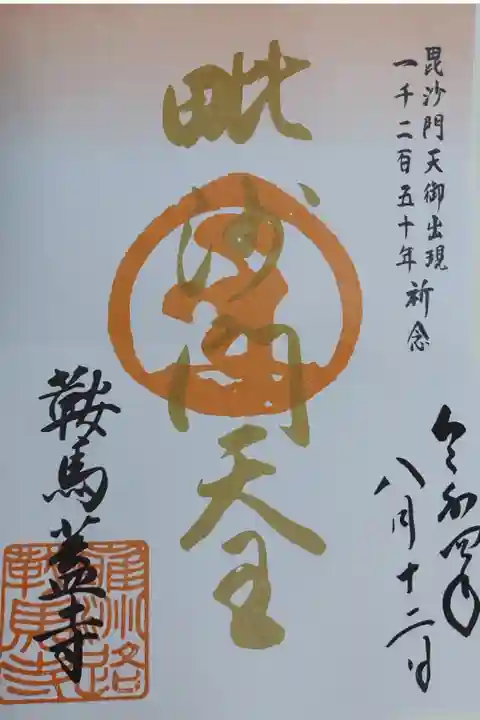 毘沙門天御出現
一千二百五十年祈念
令和四年
八月十二日
毗沙門天王
鞍馬蓋寺
雍州路
鞍馬寺